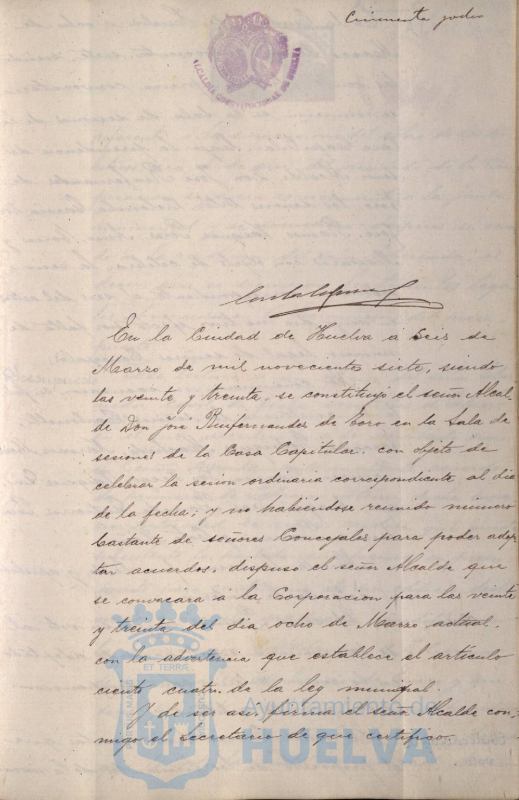 Cincuenta y dos
ALCALDIA CONSTITUCIONAL DE HUELVA
En la Ciudad de Huelva á Seis de
Marzo de mil novecientos siete, siendo
las veinte y treinta, se constituyó el señor Alcal-
de Don José Rinfernandez de Toro en la Sala de
sesiones de la Casa Capitular, con objeto de
celebrar la sesion ordinaria correspondiente al dia
de la fecha; y no habiéndose reunido número
bastante de señores Concejales para poder adop-
tar acuerdos, dispuso el señor Alcalde que
se convocara á la Corporacion para las veinte
y treinta del dia ocho de Marzo actual,
con la advertencia que establece el artículo
ciento cuatro de la ley municipal.
Y de ser asi firma el señor Alcalde con-
migo el Secretario de que certifico.
ET TERRÆ
Ayuntamiento de
HUELVA